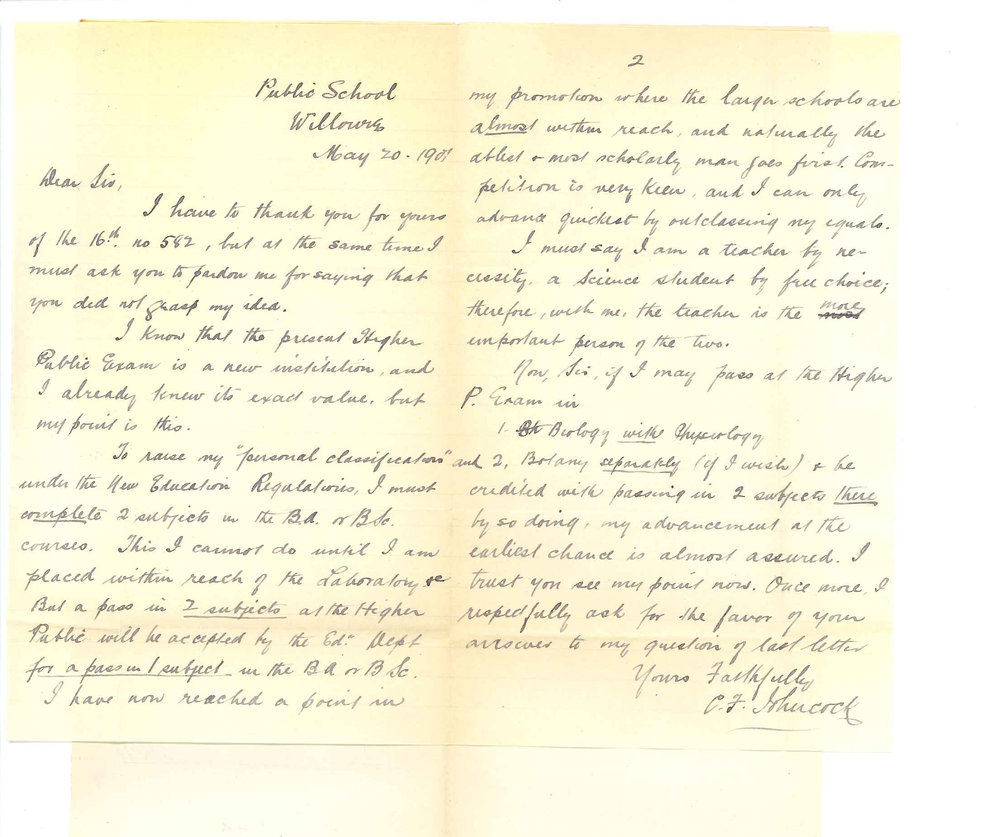 Public School
Willowie
May 20. 1901
Dear Sir,
I have to thank you for yours
of the 16th. no 582, but at the same time I
must ask you to pardon me for saying that
you did not grasp my idea.
I know that the present Higher
Public Exam is a new institution, and
I already knew its exact value, but
my point is this.
To raise my "personal classification"
under the New Education Regulations, I must
complete 2 subjects in the B.A. or B.Sc.
courses. This I cannot do until I am
placed within reach of the Laboratory &c
But a pass in 2 subjects at the Higher
Public will be accepted by the Edn. Dept
for a pass in 1 subject in the B.A or B Sc.
I have now reached a point in
2
my promotion where the larger schools are
almost within reach, and naturally the
ablest & most scholarly man goes first. Com-
petition is very keen, and I can only
advance quickest by outclassing my equals.
I must say I am a teacher by ne-
cessity, a science student by free choice;
therefore, with me, the teacher is the most more
important person of the two.
Now, Sir, if I may pass at the Higher
P. Exam in
1. Biology with Physiology
and 2, Botany separately (if I wish) & be
credited with passing in 2 subjects there
by so doing, my advancement at the
earliest chance is almost assured. I
trust you see my point now. Once more, I
respectfully ask for the favor of your
answer to my question of last letter
Yours Faithfully
C. F. Johncock